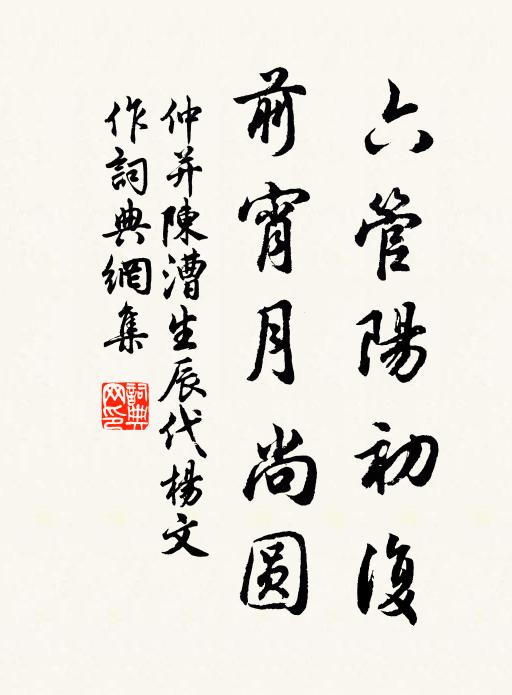 六管陽初復
前宵月尚圆
仲并陳漕生辰代楊文
作詞典網集
詞典
网印